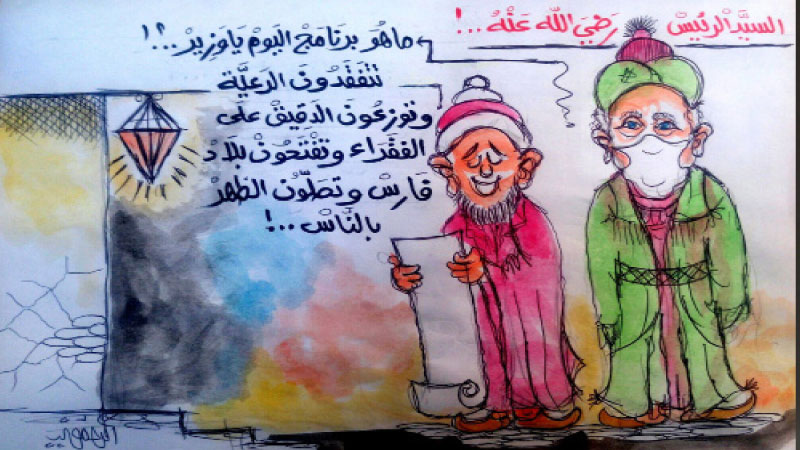 السيَّد الرئيسْ رَضِيَ اللّه عَنْهُ ..!
ما هُوَ برنَامجُ اليَومْ يَا وَزِيرْ ..؟!
تتَفَقّدُونَ الرَعيَّة
وتوزعُونَ الدَقيقْ علَى
الفقَرَاء وتفْتحُونْ بلَادْ
فَارِسْ وتصَلّونْ الظُهرْ
بالنَّاسْ ..!